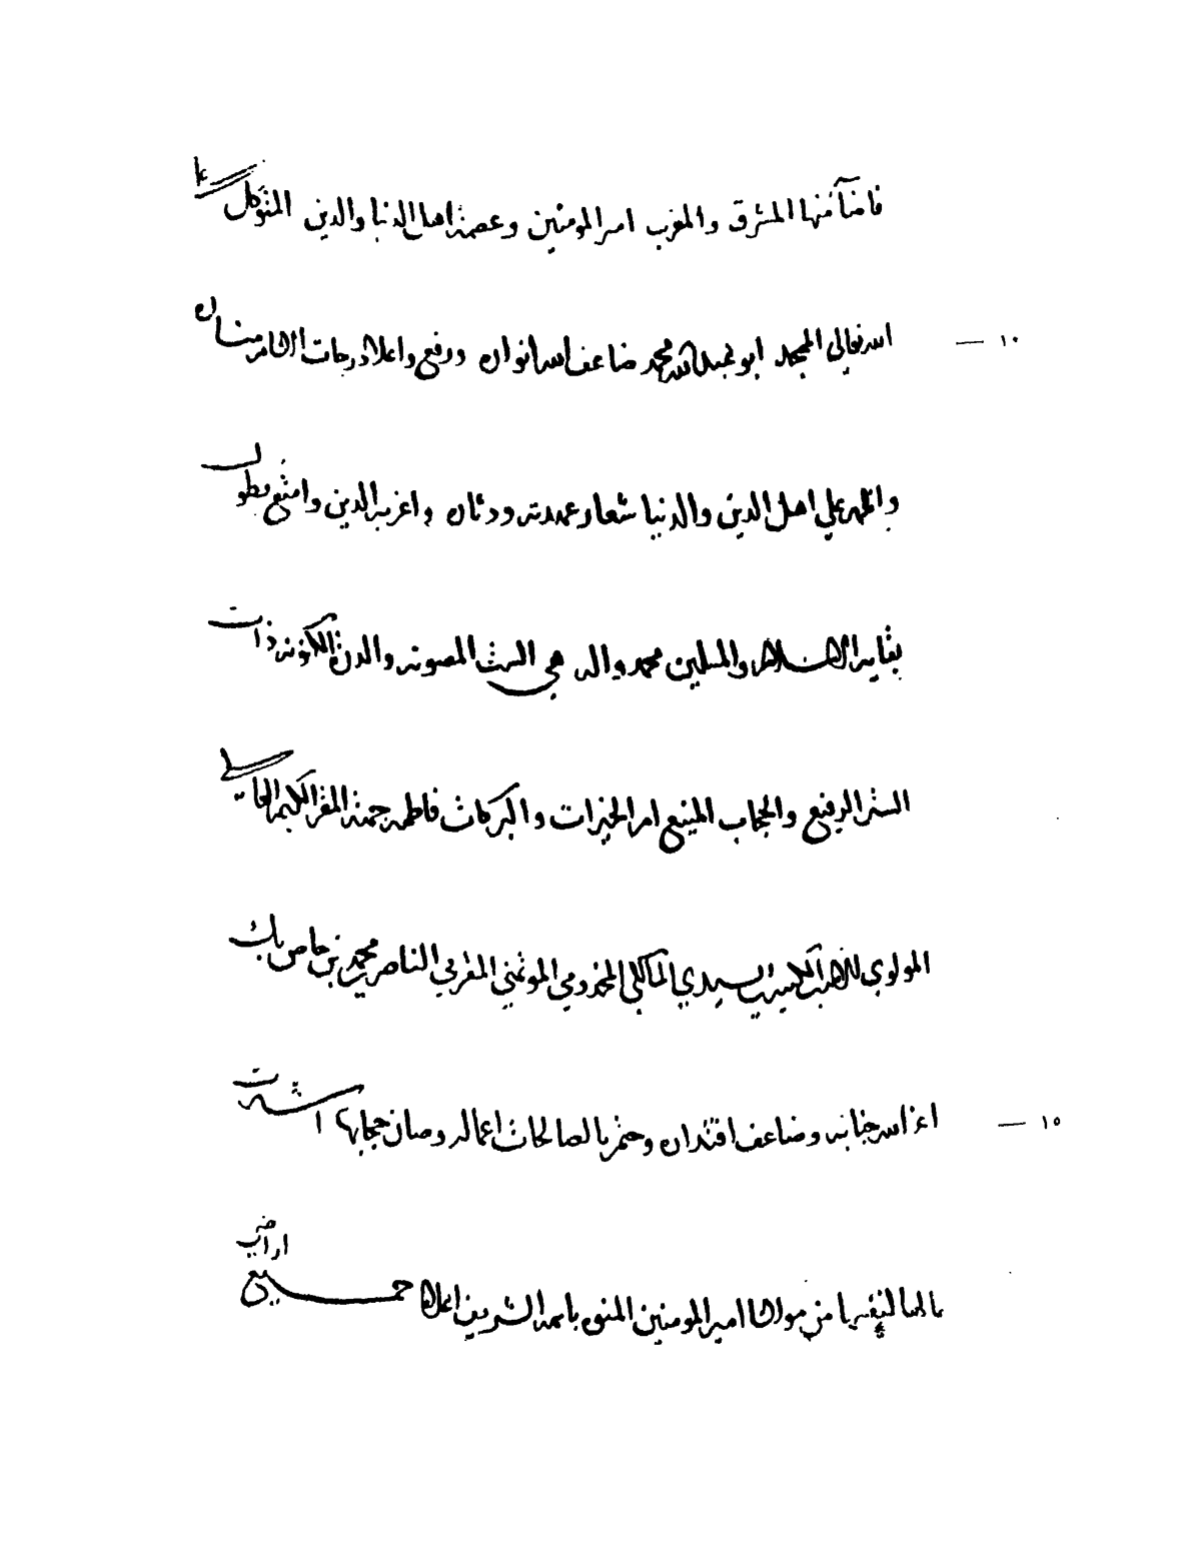 فاضآ منها المشرق والمغرب امير المومنين وعصمة اهل الدنيا والدين المتوكل على
١٠ — الله تعالى ابو عبد الله محمد ضاعف الله انواره ورفع واعلا درجات مناره
واظهر على اهل الدين والدنيا شعار ودثاره واعز به الدين وامتع بطول
بقايه الاسلام والمسلمين محمد واله هي الست المصونه والدرة المكنونه ذات
الستر الرفيع والحجاب المنيع ام الخيرات والبركات فاطمه جهة المقر الكريم العالي
المولوي السيدي المالكي المخدومي المغربي الناصر محمد بن خاص بك
١٥ — اعز الله جنابه وضاعف اقتداره وختم بالصالحات اعماله وصان حجابها اشترت
بمالها لنفسها من مولانا امير المومنين المنوه باسمه الشريف اعلاه جميع
اراضي